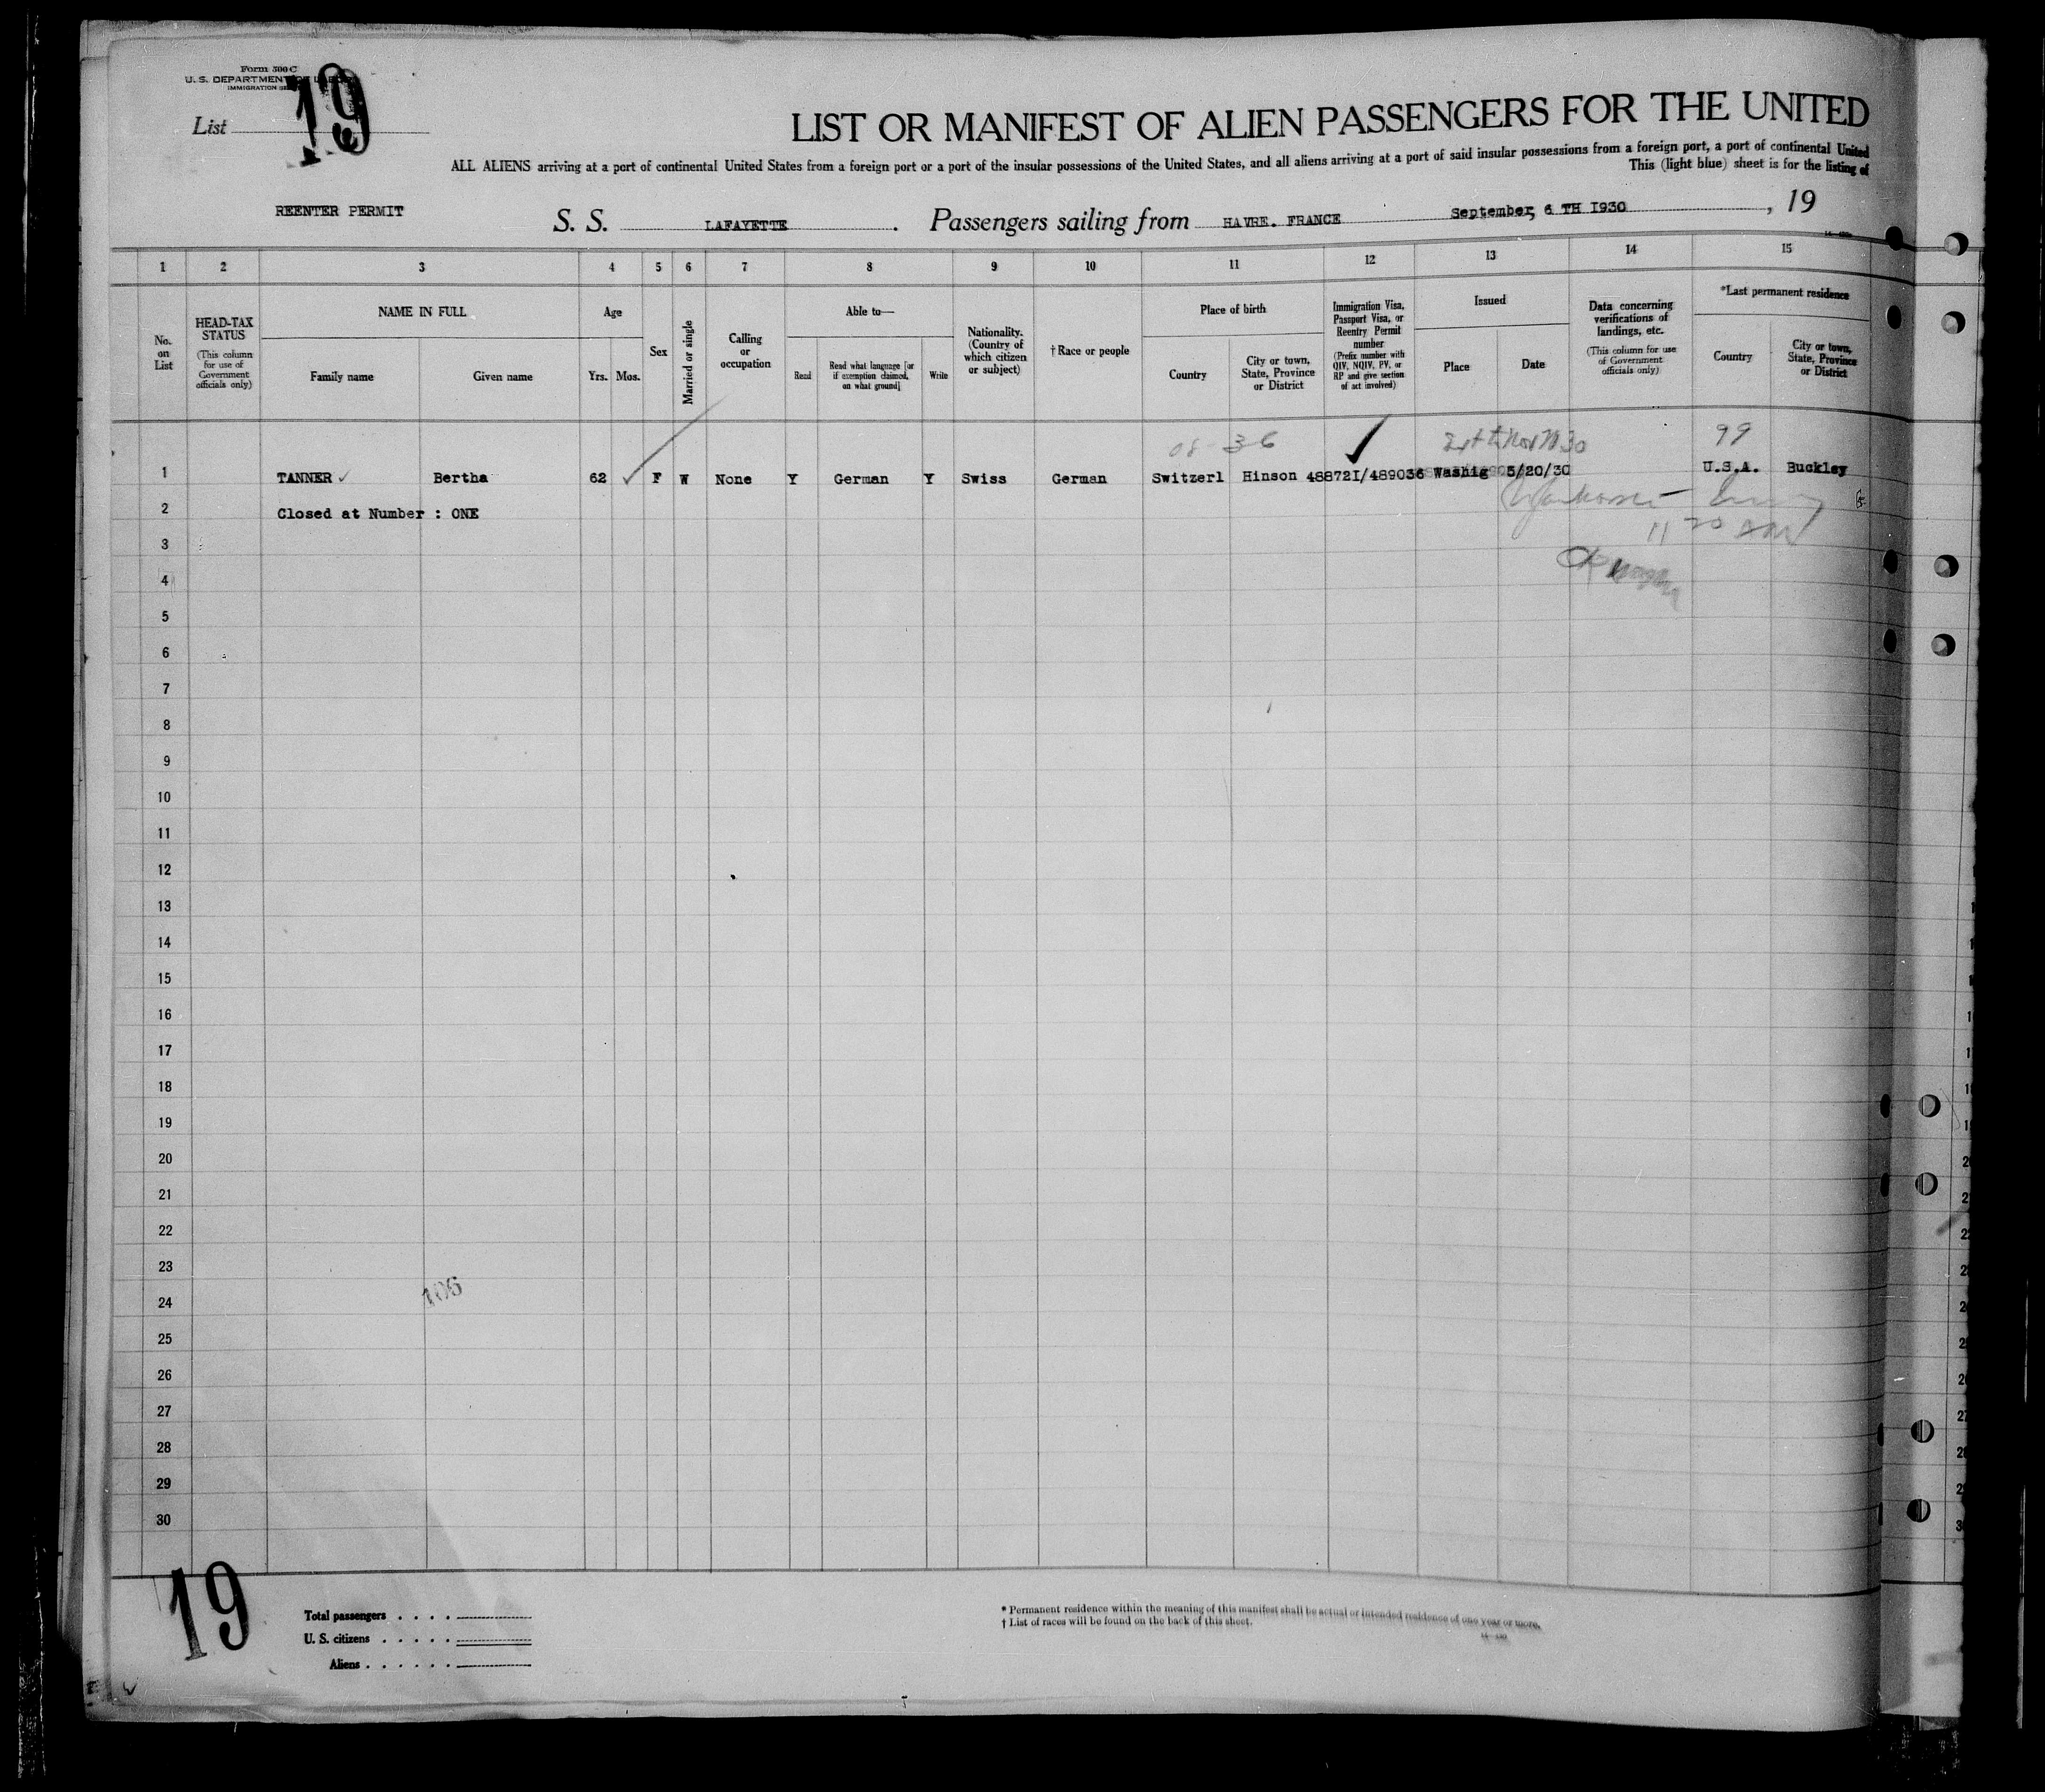 Form 500 C
U. S. DEPARTMENT OF LABOR
IMMIGRATION SERVICE
List 19
LIST OR MANIFEST OF ALIEN PASSENGERS FOR THE UNITED
ALL ALIENS arriving at a port of continental United States from a foreign port or a port of the insular possessions of the United States, and all aliens arriving at a port of said insular possessions from a foreign port, a port of continental United
This (light blue) sheet is for the listing of
REENTER PERMIT S. S. LAFAYETTE. Passengers sailing from HAVRE. FRANCE September, 6 TH I930, 19
1 2 3 4 5 6 7 8 9 10 11 12 13 14 15
No. on List
HEAD-TAX STATUS
(This column for use of Government officials only)
NAME IN FULL
Family name Given name
Age
Yrs. Mos.
Sex
Married or single
Calling or occupation
Able to—
Read
Read what language [or if exemption claimed, on what ground]
Write
Nationality. (Country of which citizen or subject)
† Race or people
Place of birth
Country
City or town, State, Province or District
Immigration Visa, Passport Visa, or Reentry Permit number
(Prefix number with QIV, NQIV, PV, or RP and give section of act involved)
Issued
Place Date
Data concerning verifications of landings, etc.
(This column for use of Government officials only)
*Last permanent residence
Country
City or town, State, Province or District
08-36 99
1 TANNER ✓ Bertha 62 ✓ F W None Y German Y Swiss German Switzerl Hinson 48872I/489036 Washig 5/20/30 U.S.A. Buckley
2 Closed at Number : ONE
11 20 AM
3
4
OK
5
6
7
8
9
10
11
12
13
14
15
16
17
18
19
20
21
22
23
106
24
25
26
27
28
29
30
19
Total passengers . . . .
U. S. citizens . . . . .
Aliens . . . . . .
* Permanent residence within the meaning of this manifest shall be actual or intended residence of one year or more.
† List of races will be found on the back of this sheet.